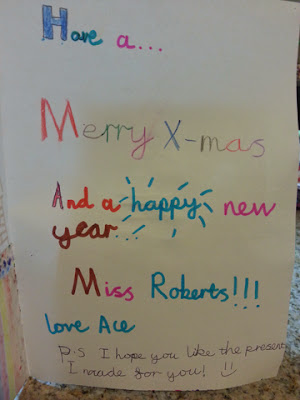 Have a...
Merry X-mas
And a happy new
year...
Miss Roberts!!!
love Ace
P.S I hope you like the present
I made for you! !!